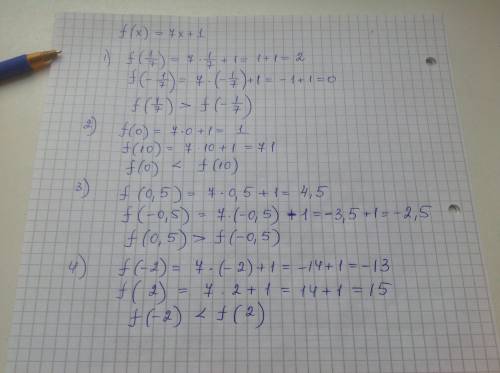 f(x) = 7x+1
1) f(1/7) = 7 · 1/7 + 1 = 1+1 = 2
f(-1/7) = 7 · (-1/7)+1 = -1+1 = 0
f(1/7) > f(-1/7)
2) f(0) = 7·0+1 = 1
f(10) = 7·10+1 = 71
f(0) < f(10)
3) f(0,5) = 7·0,5+1 = 4,5
f(-0,5) = 7·(-0,5)+1 = -3,5+1 = -2,5
f(0,5) > f(-0,5)
4) f(-2) = 7·(-2)+1 = -14+1 = -13
f(2) = 7·2+1 = 14+1 = 15
f(-2) < f(2)